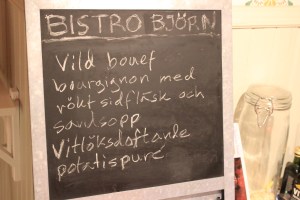 BISTRO BJÖRN
Vild bouef
bourgignon med
rökt sidfläsk och
svidsopp
Vitlöksdoftande
potatispuré